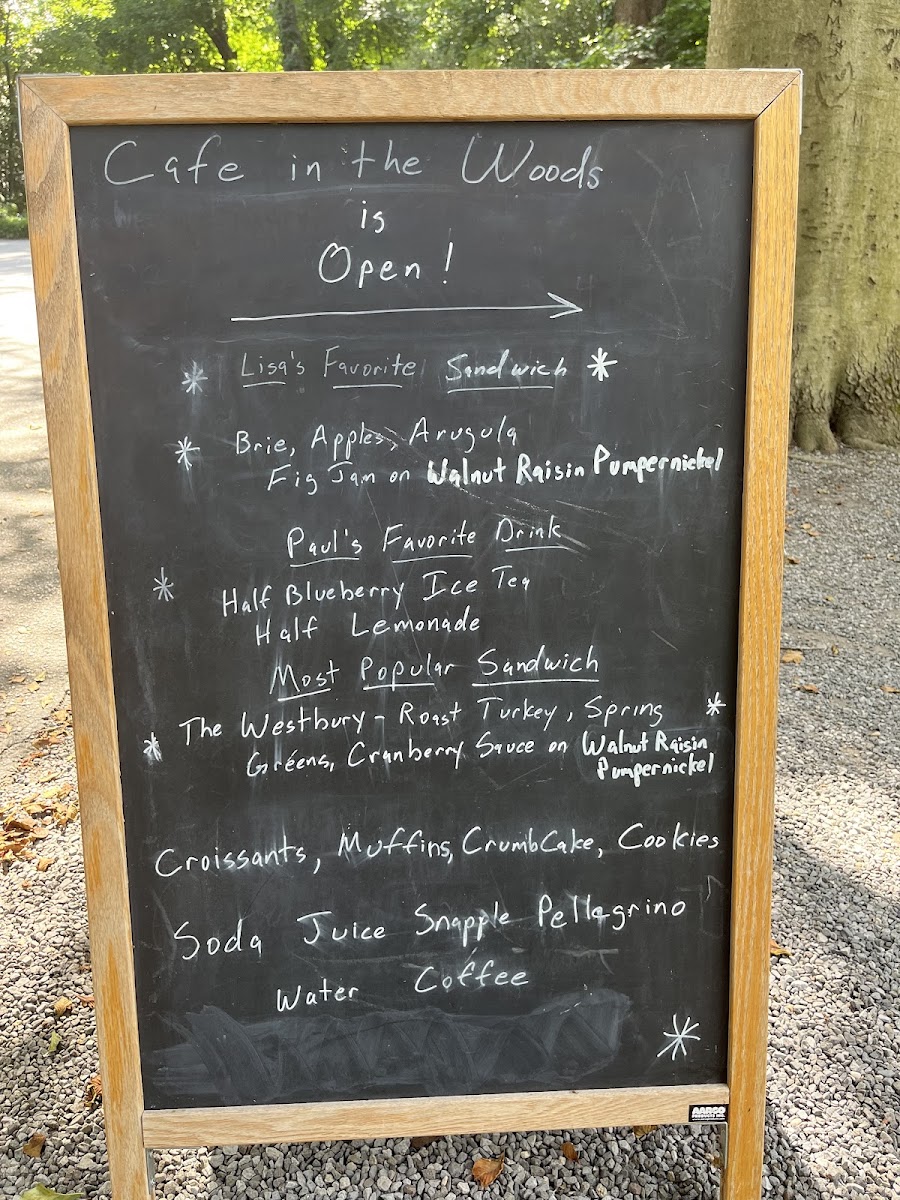 Cafe in the Woods
is
Open!
Lisa's Favorite Sandwich
Brie, Apples, Arugula
Fig Jam on Walnut Raisin Pumpernickel
Paul's Favorite Drink
Half Blueberry Ice Tea
Half Lemonade
Most Popular Sandwich
The Westbury - Roast Turkey, Spring
Greens, Cranberry Sauce on Walnut Raisin
Pumpernickel
Croissants, Muffins, CrumbCake, Cookies
Soda Juice Snapple Pellegrino
Water Coffee
AARCO
PRODUCTS INC.